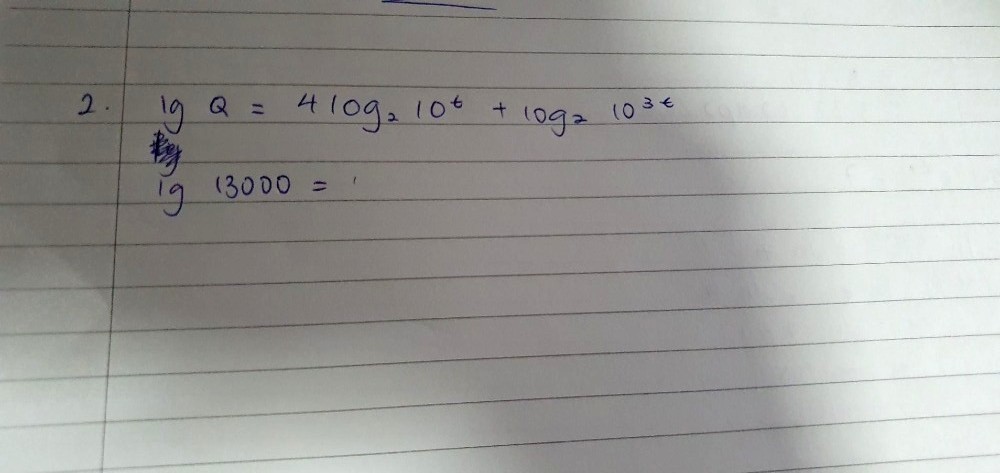 2. lg Q = 4 log₂ 10ᵗ + log₂ 10³ᵗ
lg 13000 =